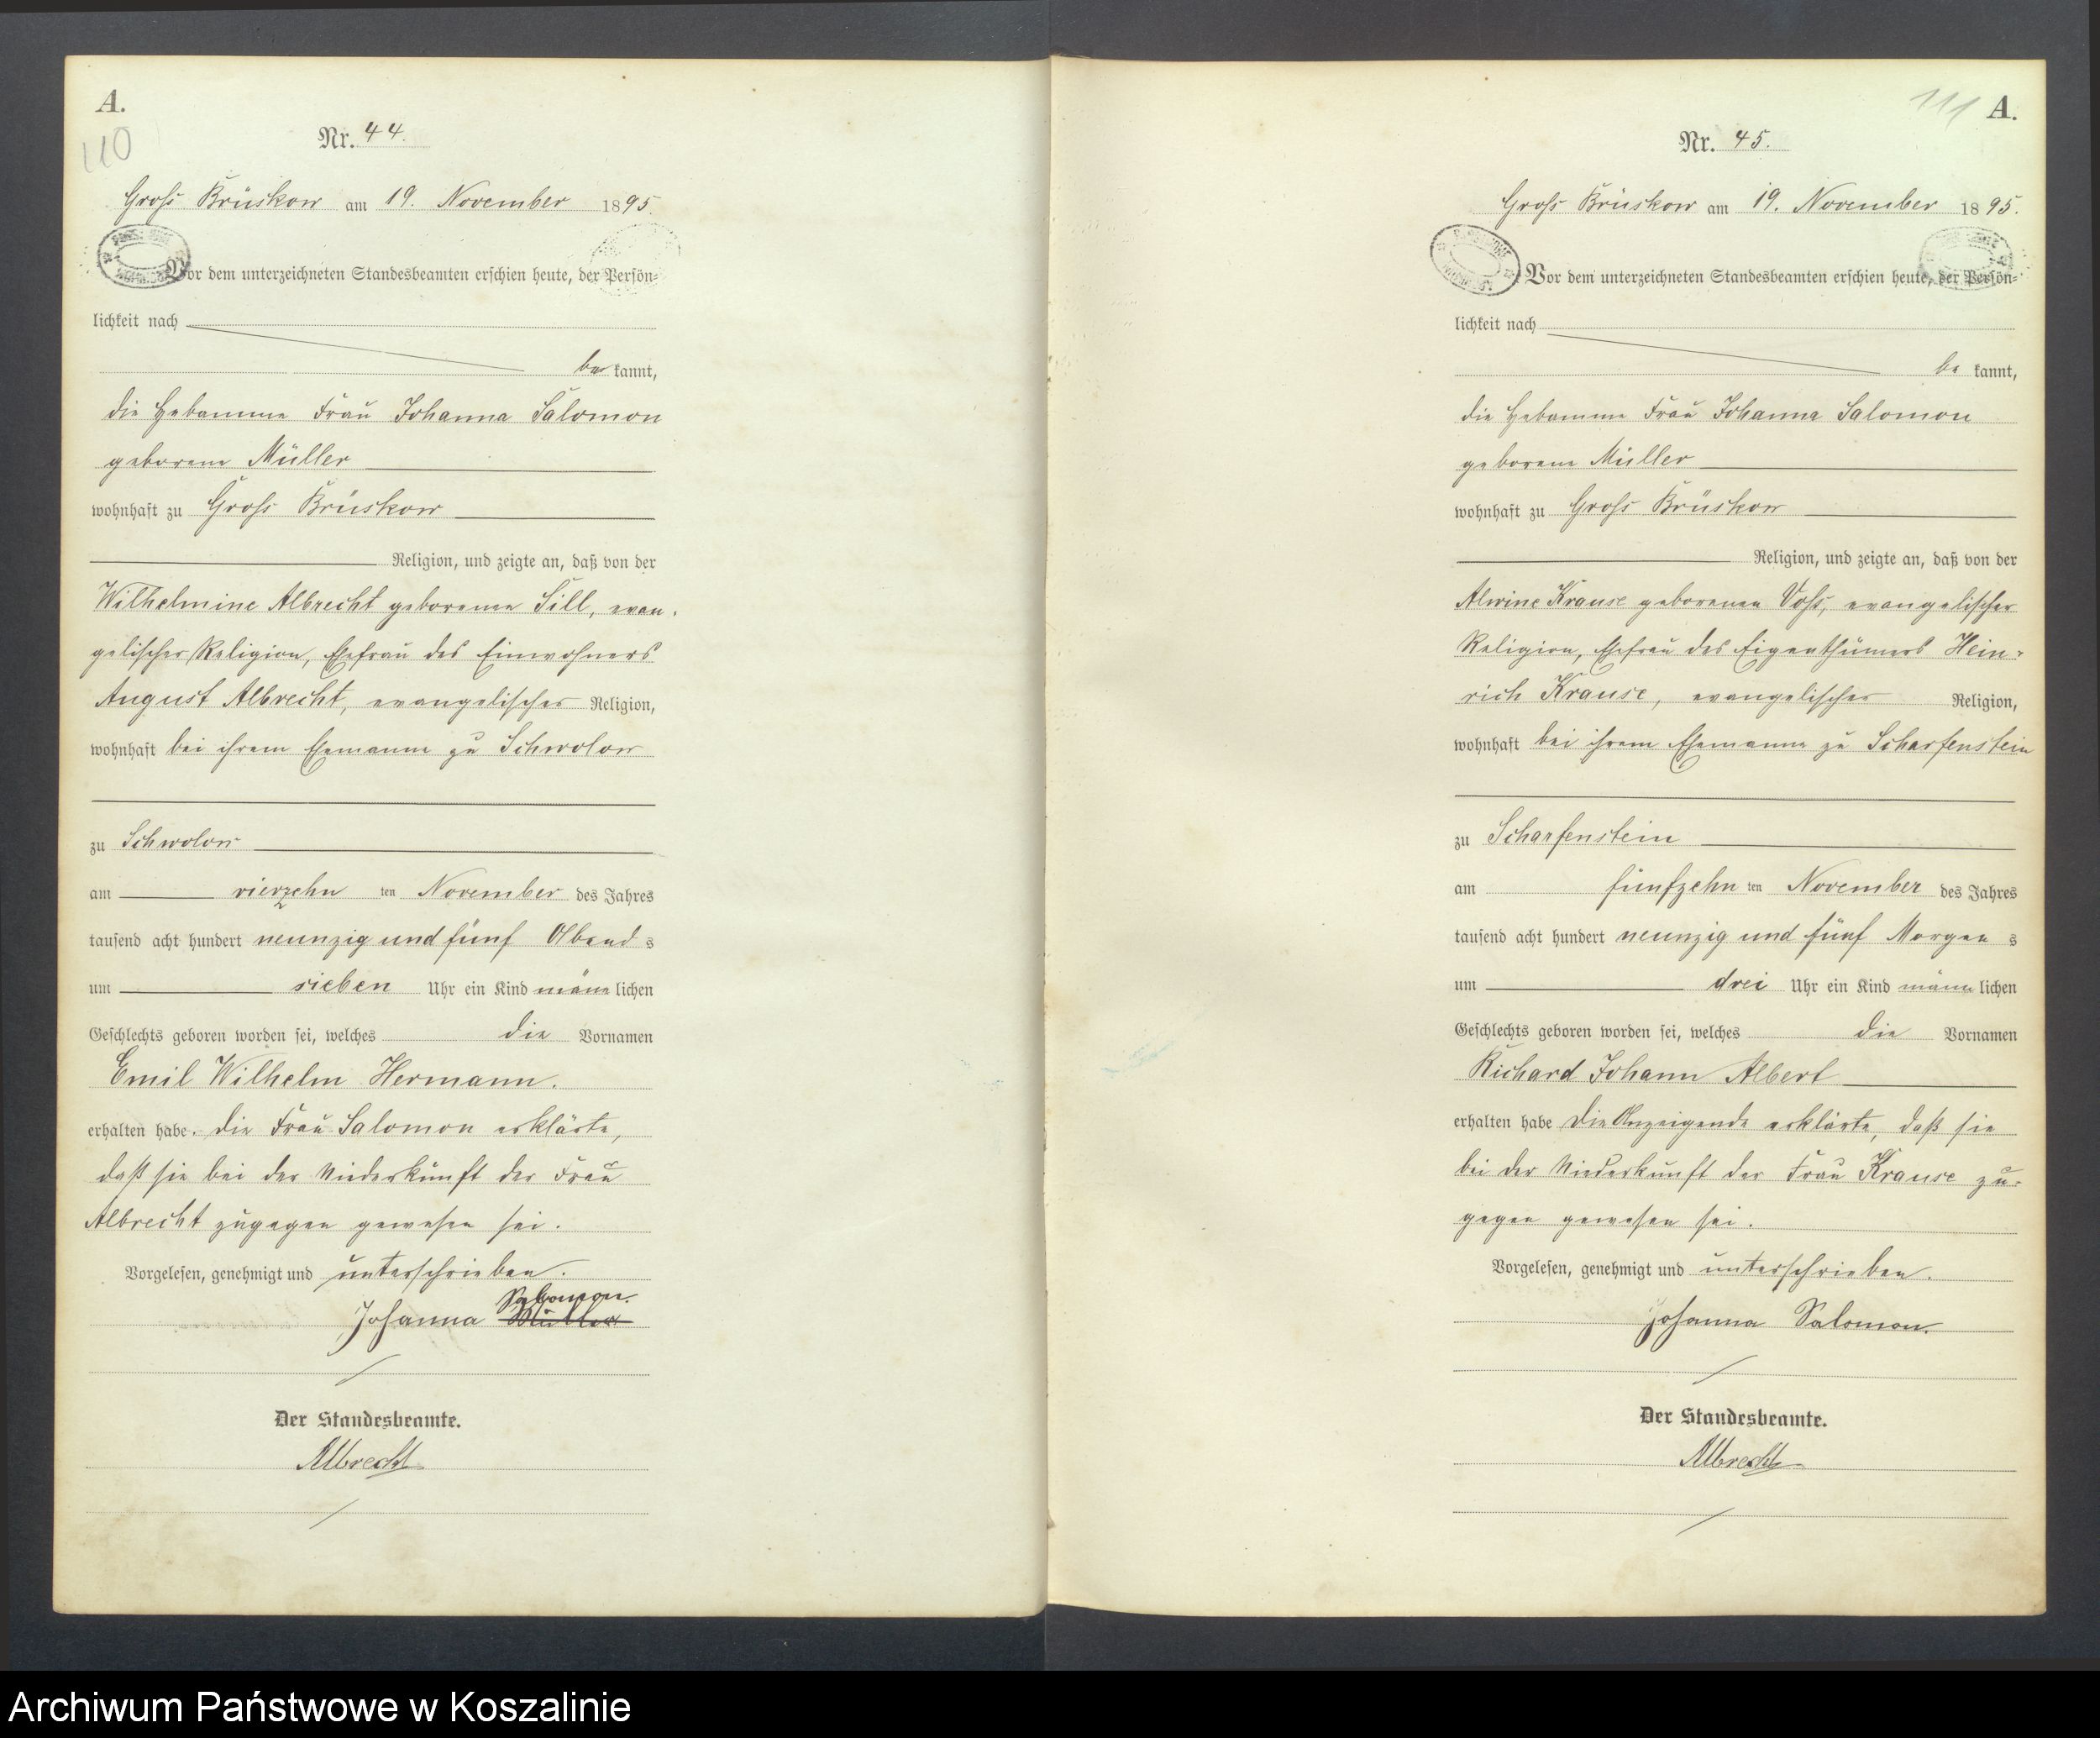 A.
110
Nr. 44.
Groß Brüskow am 19. November 1895.
Vor dem unterzeichneten Standesbeamten erschien heute, der Persön=
lichkeit nach
be kannt,
die Hebamme Frau Johanna Salomon
geborene Müller
wohnhaft zu Groß Brüskow
Religion, und zeigte an, daß von der
Wilhelmine Albrecht geborenen Sill, evan-
gelischer Religion, Ehefrau des Einwohners
August Albrecht, evangelischer Religion,
wohnhaft bei ihrem Ehemanne zu Schwolow
zu Schwolow
am vierzehn ten November des Jahres
tausend acht hundert neunzig und fünf Abend s
um sieben Uhr ein Kind männ lichen
Geschlechts geboren worden sei, welches die Vornamen
Emil Wilhelm Hermann.
erhalten habe. Die Frau Salomon erklärte,
daß sie bei der Niederkunft der Frau
Albrecht zugegen gewesen sei.
Vorgelesen, genehmigt und unterschrieben.
Salomon.
Johanna Müller
Der Standesbeamte.
Albrecht
111
A.
Nr. 45.
Groß Brüskow am 19. November 1895.
Vor dem unterzeichneten Standesbeamten erschien heute, der Persön=
lichkeit nach
be kannt,
die Hebamme Frau Johanna Salomon
geborene Müller
wohnhaft zu Groß Brüskow
Religion, und zeigte an, daß von der
Alwine Krause geborenen Voß, evangelischer
Religion, Ehefrau des Eigenthümers Hein-
rich Krause, evangelischer Religion,
wohnhaft bei ihrem Ehemanne zu Scharfenstein
zu Scharfenstein
am fünfzehn ten November des Jahres
tausend acht hundert neunzig und fünf Morgen s
um drei Uhr ein Kind männ lichen
Geschlechts geboren worden sei, welches die Vornamen
Richard Johann Albert
erhalten habe Die Anzeigende erklärte, daß sie
bei der Niederkunft der Frau Krause zu-
gegen gewesen sei.
Vorgelesen, genehmigt und unterschrieben.
Johanna Salomon.
Der Standesbeamte.
Albrecht
Archiwum Państwowe w Koszalinie